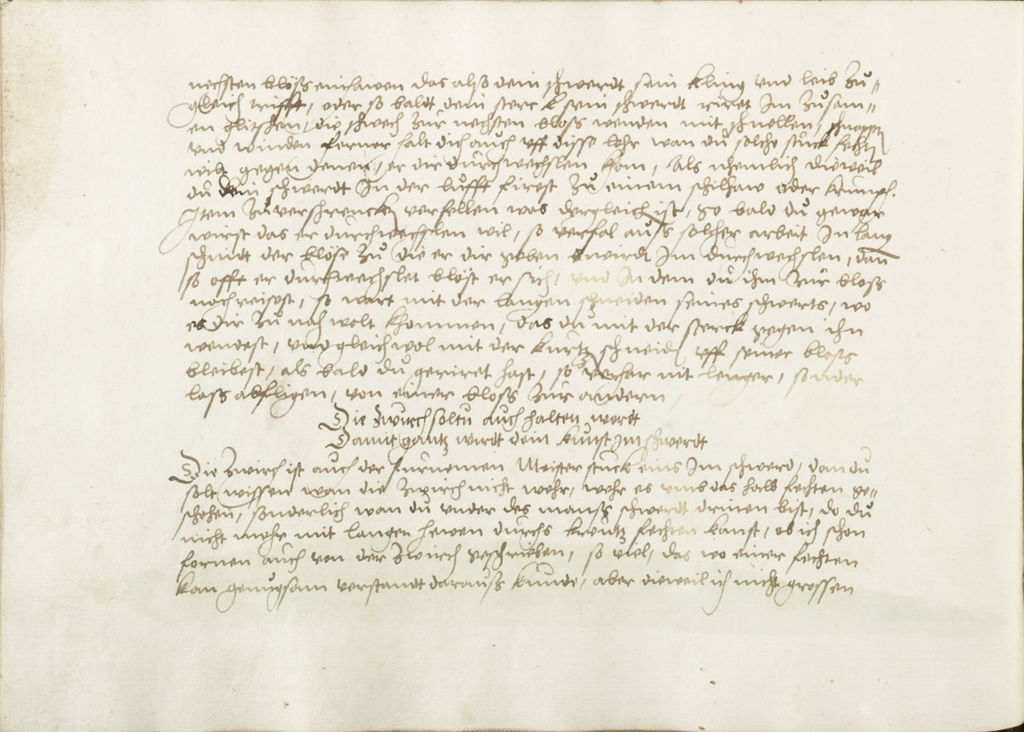 nechsten blöß einhawen das also dein schwerdt, sein kling vnd leib zu¬
gleich trifft, oder so baldt dein sterck sein schwerdt rüret Im zusam¬
en glitschen, die schwech zur nechsten blöss wenden mit schnellen, schnappen
vnd winden ferner halt dich auch vff disse lehr wan du solche stuck fechten
wilt gegen denen, er die durchwechslen kan, als nhemlich dieweil
du dein schwerdt In der lufft fierest zu einem schilhaw oder krump,
Item zuverschrencken verfellen was dergleich ist, so bald du gewar
würst das er durchwechslen wil, so verfal auß solcher arbeit In lang
schnidt der blösse zu die er dir geben wirdt Im durchwechslen, dan
so offt er durchwechslet blöst er sich, vnd In dem du ihm zur blöss
nochreisest, so wart mit der langen schneiden seines schwerts, wo
es dir zu nah wolt khommen, das du mit der sterck gegen ihn
wendest, vnd gleichwol mit der kurtz schneid vff seiner blöß
bleibest, als bald du geriret hast, so verhar nit lenger, sonder
lass abfligen, von einer bloss zur andern
Die zwirch soltu auch halten wert
Damit gantz wirdt dein kunst Im schwerdt
Die zwirch ist auch der furnemen Meister stuck eins Im schwerd, dan du
solt wissen wan die zwirch nicht wehr, wehr es vmb das halb fechten ge¬
schehen, sonderlich wan du vnder des manß schwerdt drinen bist, do du
nicht mehr mit langen hewen durchs kreutz fechten kanst, ob ich schon
fornen auch von der zwirch geschrieben, so viel, das wo einer fechten
kan genugsam verstandt darauß kunde, aber dieweil ich nicht grossen